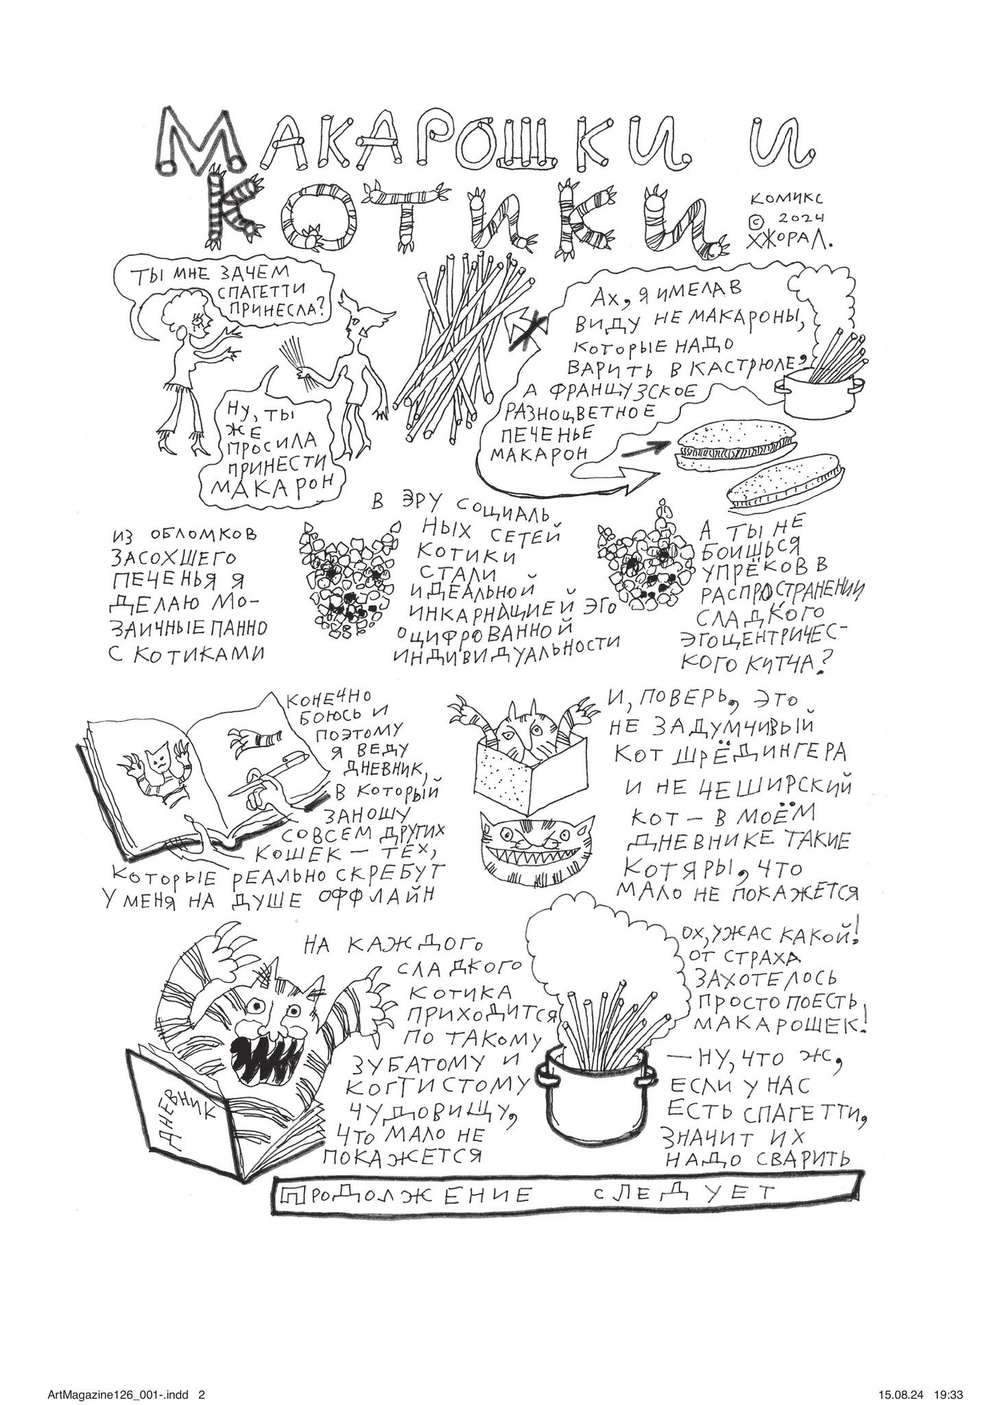 МАКАРОШКИ И
КОТИКИ
КОМИКС
© 2024
ХЖОРАЛ.
ТЫ МНЕ ЗАЧЕМ
СПАГЕТТИ
ПРИНЕСЛА?
НУ, ТЫ
ЖЕ
ПРОСИЛА
ПРИНЕСТИ
МАКАРОН
АХ, Я ИМЕЛА В
ВИДУ НЕ МАКАРОНЫ,
КОТОРЫЕ НАДО
ВАРИТЬ В КАСТРЮЛЕ,
А ФРАНЦУЗСКОЕ
РАЗНОЦВЕТНОЕ
ПЕЧЕНЬЕ
МАКАРОН
ИЗ ОБЛОМКОВ
ЗАСОХШЕГО
ПЕЧЕНЬЯ Я
ДЕЛАЮ МО-
ЗАИЧНЫЕ ПАННО
С КОТИКАМИ
В ЭРУ СОЦИАЛЬ
НЫХ СЕТЕЙ
КОТИКИ
СТАЛИ
ИДЕАЛЬНОЙ
ИНКАРНАЦИЕЙ ЭГО
ОЦИФРОВАННОЙ
ИНДИВИДУАЛЬНОСТИ
А ТЫ НЕ
БОИШЬСЯ
УПРЁКОВ В
РАСПРОСТРАНЕНИИ
СЛАДКОГО
ЭГОЦЕНТРИЧЕС-
КОГО КИТЧА?
КОНЕЧНО
БОЮСЬ И
ПОЭТОМУ
Я ВЕДУ
ДНЕВНИК,
В КОТОРЫЙ
ЗАНОШУ
СОВСЕМ ДРУГИХ
КОШЕК — ТЕХ,
КОТОРЫЕ РЕАЛЬНО СКРЕБУТ
У МЕНЯ НА ДУШЕ ОФФЛАЙН
И, ПОВЕРЬ, ЭТО
НЕ ЗАДУМЧИВЫЙ
КОТ ШРЁДИНГЕРА
И НЕ ЧЕШИРСКИЙ
КОТ — В МОЁМ
ДНЕВНИКЕ ТАКИЕ
КОТЯРЫ, ЧТО
МАЛО НЕ ПОКАЖЕТСЯ
ДНЕВНИК
НА КАЖДОГО
СЛАДКОГО
КОТИКА
ПРИХОДИТСЯ
ПО ТАКОМУ
ЗУБАТОМУ И
КОГТИСТОМУ
ЧУДОВИЩУ,
ЧТО МАЛО НЕ
ПОКАЖЕТСЯ
ОХ, УЖАС КАКОЙ!
ОТ СТРАХА
ЗАХОТЕЛОСЬ
ПРОСТО ПОЕСТЬ
МАКАРОШЕК!
— НУ, ЧТО Ж,
ЕСЛИ У НАС
ЕСТЬ СПАГЕТТИ,
ЗНАЧИТ ИХ
НАДО СВАРИТЬ
ПРОДОЛЖЕНИЕ СЛЕДУЕТ
ArtMagazine126_001-.indd 2
15.08.24 19:33